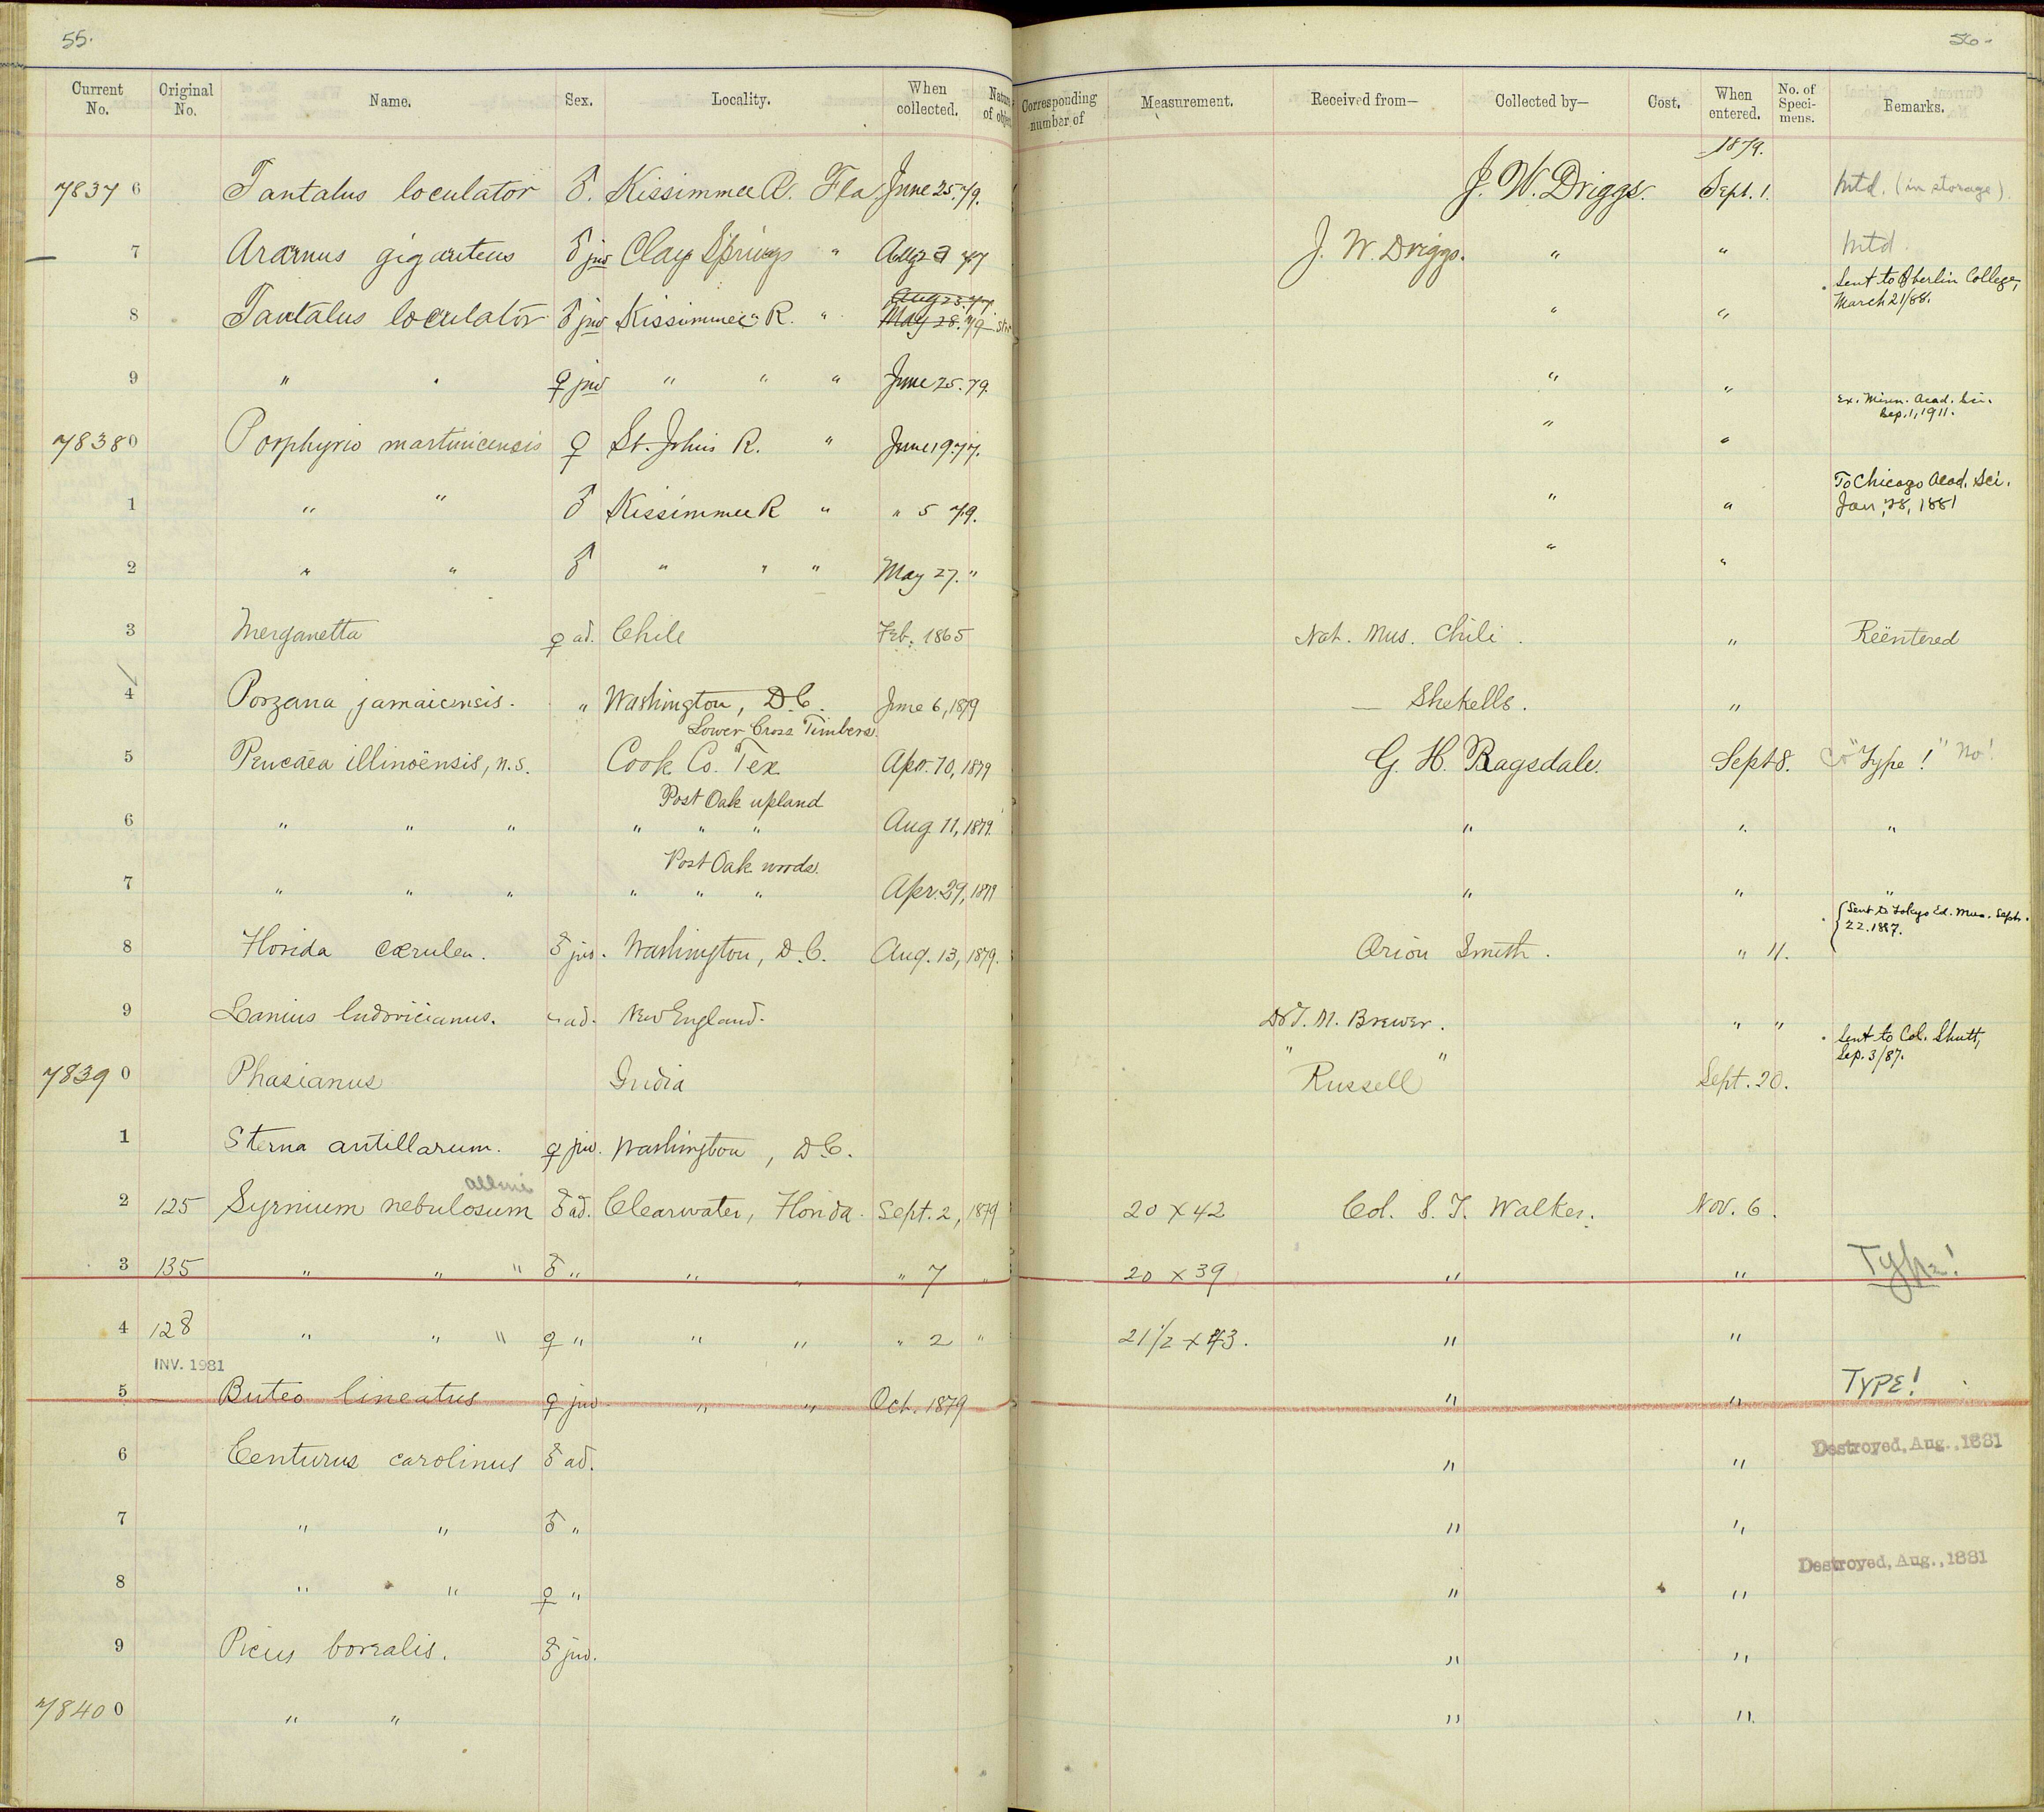 55.
56-
Current No. Original No. Name. Sex. Locality. When collected. Nature of object Corresponding number of Measurement. Received from— Collected by— Cost. When entered. No. of Speci- mens. Remarks.
1879.
78376 Tantalus loculator ♂. Kissimmee R. Fla June 25.79. J. W. Driggs. Sept. 1. Mtd. (in storage).
7 Aramus giganteus ♂ juv Clay Springs " Aug 77 J. W. Driggs. " " Mtd.
Sent to Oberlin College, March 21/88.
Aug 23.77.
8 Tantalus loculator ♂ juv Kissimmee R. " May 28.79 " "
9 " " ♀ juv " " " June 25.79. " "
Ex. Minn. Acad. Sci. Sep. 1, 1911.
78380 Porphyrio martinicensis ♀ St. Johns R. " June 19.77. " "
To Chicago Acad. Sci. Jan. 28, 1881
1 " " ♂ Kissimmee R " " 5 79. " "
2 " " ♂ " " " May 27. " " "
3 Merganetta ♀ ad. Chile Feb. 1865 Nat. Mus. Chili. " Reëntered
4 Porzana jamaicensis. " Washington, D.C. June 6, 1879 — Shekells. "
Lower Cross Timbers.
5 Peucæa illinoënsis, n.s. Cook Co. Tex Apr. 10, 1879 G. H. Ragsdale. Sept 8. Co "Type!" No!
Post Oak upland
6 " " " " " " Aug 11, 1879. " " "
Post Oak woods.
7 " " " " " " Apr. 29, 1879 " " "
Sent to Tokyo Ed. Mus. Sept. 22. 1887.
8 Florida cærulea. ♂ juv. Washington, D.C. Aug. 13, 1879. Orion Smith. " 11.
9 Lanius ludovicianus. " ad. New England. Dr T. M. Brewer. " "
Sent to Col. Shutt, Sep. 3/87.
" "
78390 Phasianus India Russell Sept. 20.
1 Sterna antillarum. ♀ juv. Washington, D.C.
alleni
2 125 Syrnium nebulosum ♂ ad. Clearwater, Florida. Sept. 2, 1879 20 x 42 Col. S. T. Walker. Nov. 6.
3 135 " " " ♂ " " " " 7 " 20 x 39 " " Type!
4 128 " " " ♀ " " " " 2 " 21 1/2 x 43. " "
INV. 1981
5 — Buteo lineatus ♀ juv " " Oct. 1879 " " TYPE!
6 Centurus carolinus ♂ ad. " " Destroyed, Aug., 1881
7 " " ♂ " " "
8 " " ♀ " " " Destroyed, Aug., 1881
9 Picus borealis. ♂ juv. " "
78400 " " " "